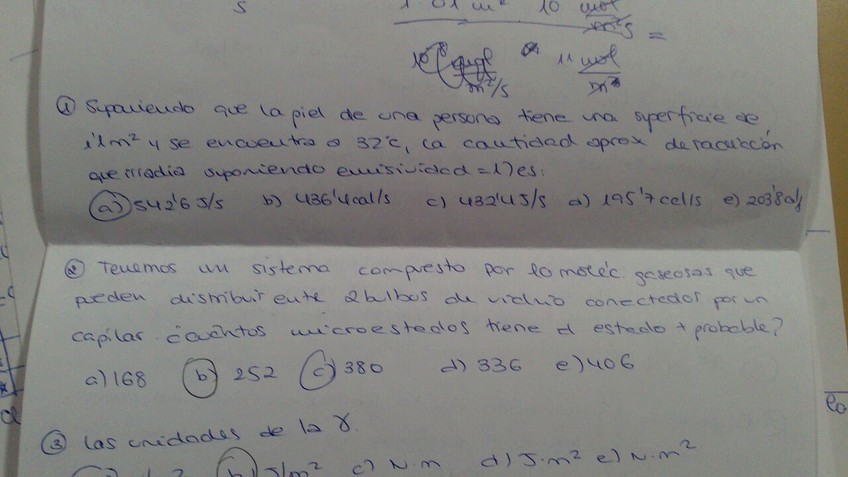 S
10 mol
m²s
=
10⁸ 11 mol
m²/s
① Suponiendo que la piel de una persona tiene una superficie de
1'1m² y se encuentra a 32°C, la cantidad aprox de radiación
que irradia suponiendo emisividad = 1) es:
a) 542'6 J/s b) 436'4 cal/s c) 432'4 J/s d) 195'7 cal/s e) 203'8
② Tenemos un sistema compuesto por 10 moléc. gaseosas que
pueden distribuir ente 2 bulbos de vidrio conectados por un
capilar. ¿cuántos microestados tiene el estado + probable?
a) 168 b) 252 c) 380 d) 336 e) 406
③ Las unidades de la γ.
b) J/m² c) N·m d) J·m² e) N·m²